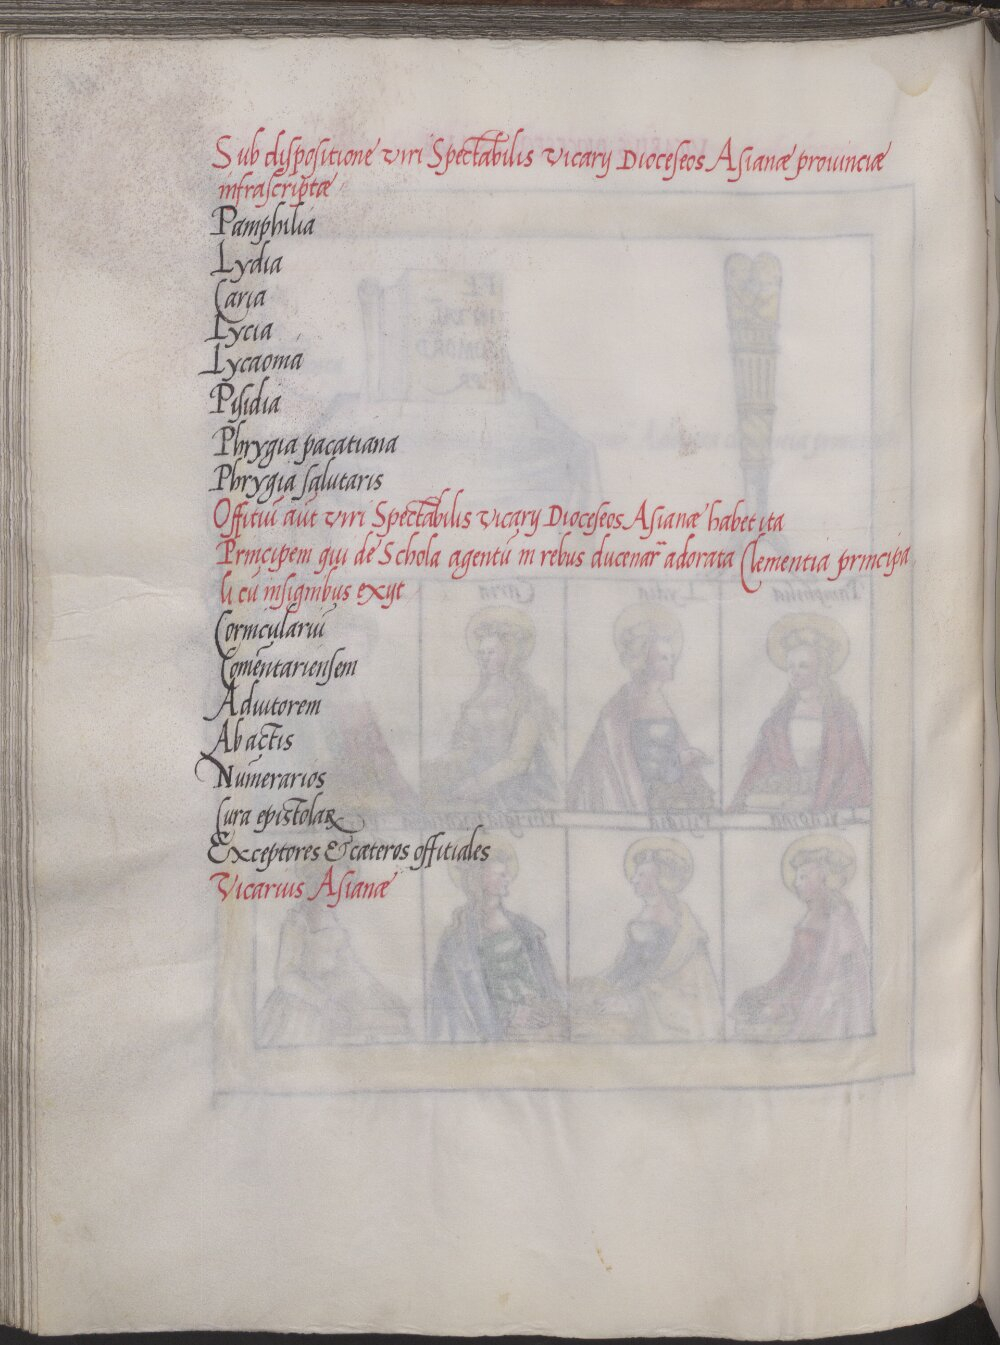 Sub dispositione viri Spectabilis vicarij Dioceseos Asianæ prouinciæ
infrascriptæ
Pamphilia
Lydia
Caria
Lycia
Lycaoma
Pisidia
Phrygia pacatiana
Phrygia salutaris
Offitiũ aũt viri Spectabilis vicarij Dioceseos Asianæ habet ita
Principem qui de Schola agentũ in rebus ducenar̃ adorata Clementia principa
li cũ insignibus exijt
Corniculariũ
Comẽntariensem
Adiutorem
Ab actis
Numerarios
Cura epistolaꝝ
Exceptores & cæteros offitiales
Vicarius Asianæ